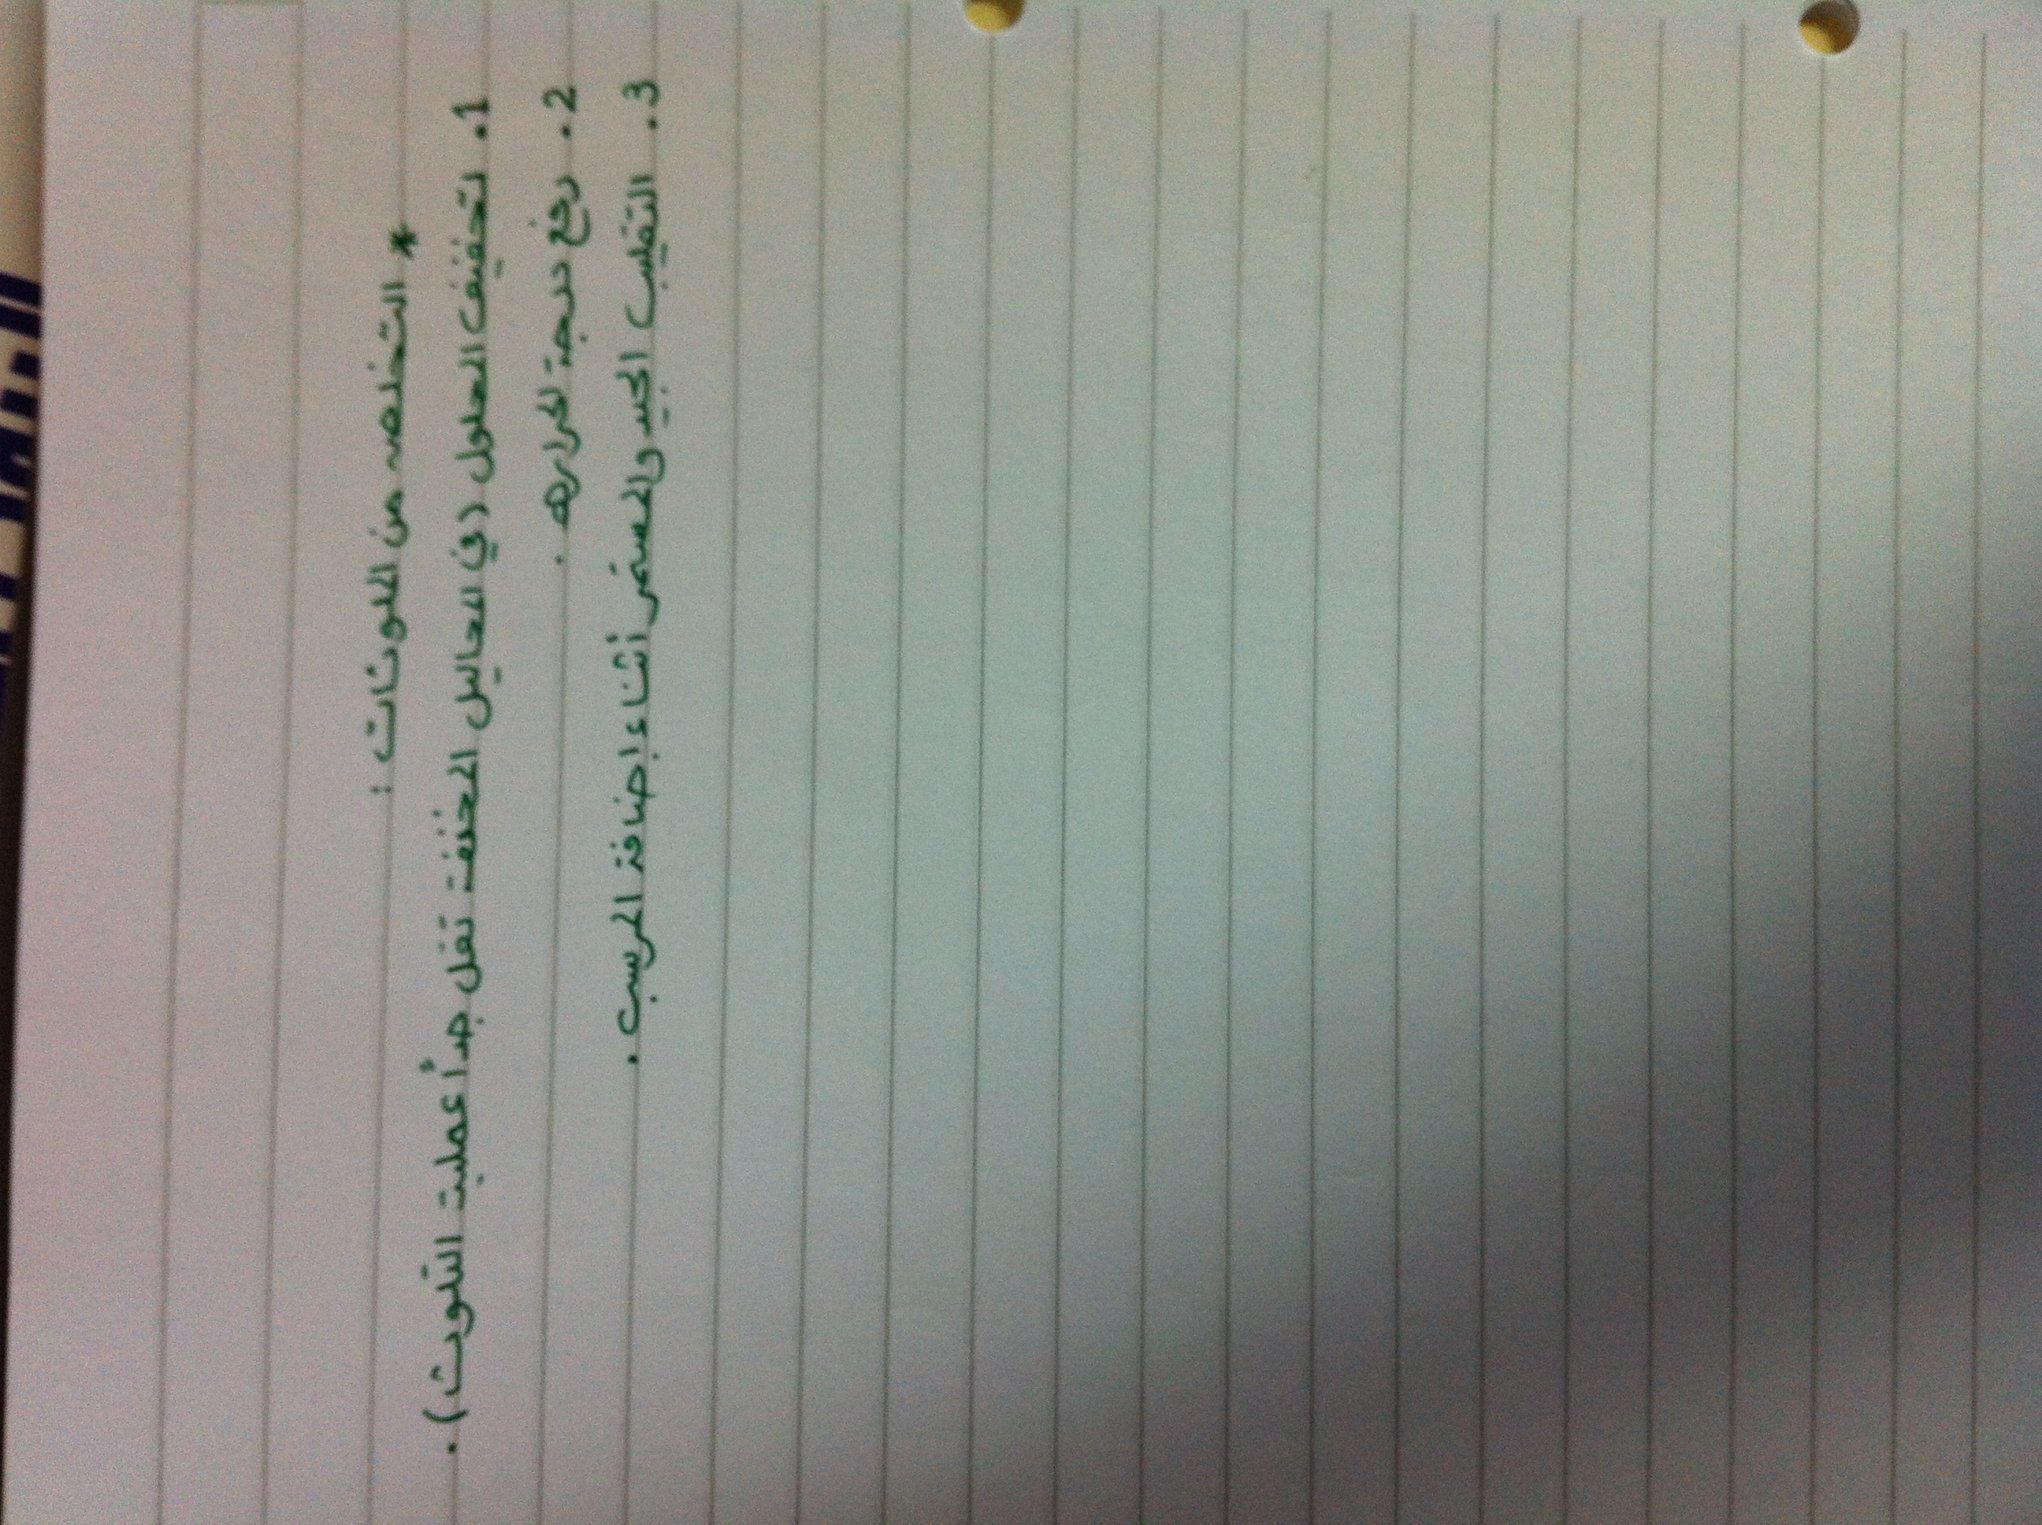 * التخلص من الملوثات :
1. تخفيف المحلول (في المحاليل المخففة تقل جداً عملية التلوث).
2. رفع درجة الحراره .
3. التقليب الجيد والمستمر أثناء إضافة المرسب .